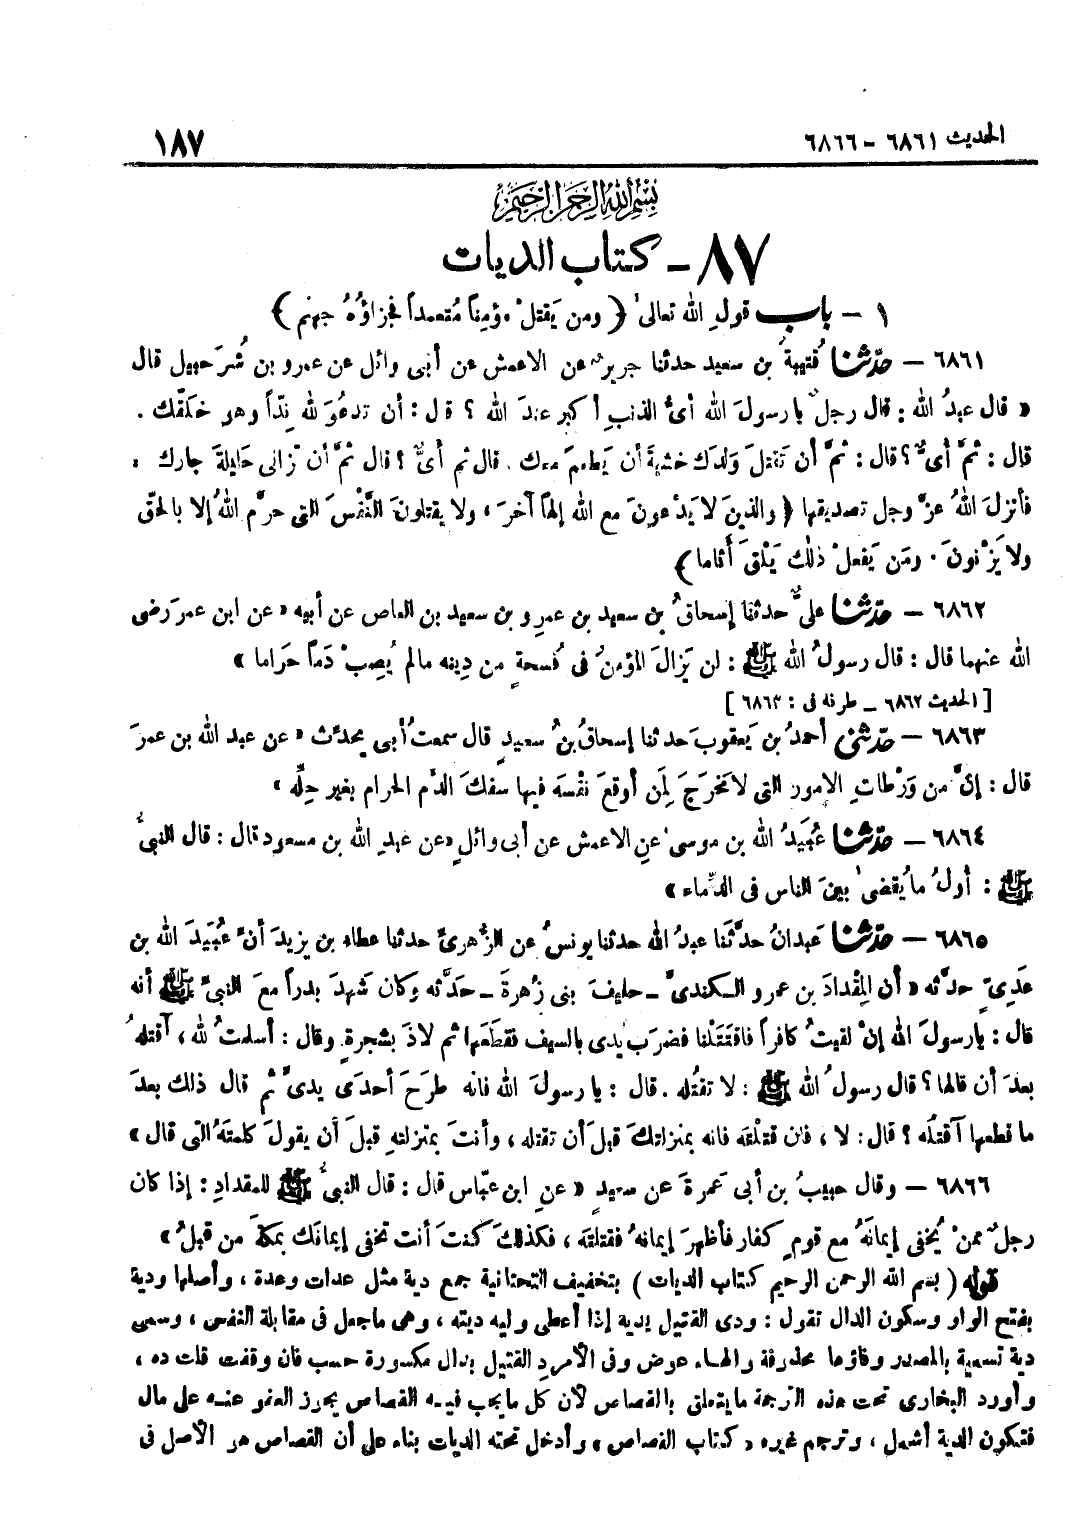 الحديث ٦٨٦١ - ٦٨٦٦ ١٨٧
بسم الله الرحمن الرحيم
٨٧ - كتاب الديات
١ - باب قولِ الله تعالىٰ ﴿ ومن يَقتلْ مؤمِناً مُتعمداً فجزاؤُهُ جهنم ﴾
٦٨٦١ - حدّثنا قُتيبةُ بن سعيد حدثنا جريرٌ عن الاعمش عن أبى وائل عن عمرو بن شُرَحبيل قال
« قال عبدُ الله : قال رجلٌ يا رسولَ الله أىُّ الذنبِ أكبر عندَ الله ؟ قال : أن تدعُوَ لله نِدّاً وهو خلَقَك .
قال : ثمَّ أىٌّ ؟ قال : ثمَّ أن تَقتلَ وَلدَك خشيةَ أن يَطعمَ معك . قال ثم أىٌّ ؟ قال ثمَّ أن تزانى حَليلةَ جارك .
فأنزلَ اللهُ عزَّ وجل تصديقها ﴿ والذينَ لا يَدْعونَ مع الله إلٰهاً آخرَ ، ولا يقتلونَ النَّفْسَ التى حرَّم اللهُ إلا بالحَقّ
ولا يَزْنونَ . ومَن يَفعلْ ذٰلك يَلْقَ أثاما ﴾
٦٨٦٢ - حدّثنا علىٌّ حدثنا إسحاقُ بن سعيد بن عمرو بن سعيد بن العاص عن أبيه « عن ابن عمرَ رضى
الله عنهما قال : قال رسولُ الله ﷺ : لن يَزالَ المؤمنُ فى فُسحةٍ من دِينه مالم يُصِبْ دَماً حَراما »
[ الحديث ٦٨٦٢ - طرفه فى : ٦٨٦٣ ]
٦٨٦٣ - حدّثنى أحمدُ بن يَعقوبَ حدثنا إسحاقُ بنُ سعيدٍ قال سمعتُ أبى يحدِّث « عن عبد الله بن عمرَ
قال : إنَّ من وَرْطاتِ الامور التى لا مَخرَجَ لمَن أوقعَ نفْسَه فيها سفكَ الدَّم الحرام بغير حِلِّه »
٦٨٦٤ - حدّثنا عُبَيدُ الله بن موسىٰ عنِ الاعمش عن أبى وائلٍ « عن عبدِ الله بن مسعود قال : قال النبىُّ
ﷺ : أولُ ما يُقضىٰ بينَ الناس فى الدِّماء »
٦٨٦٥ - حدّثنا عَبدانُ حدَّثنا عبدُ الله حدثنا يونسُ عن الزُّهرىِّ حدثنا عطاء بن يزيدَ أنَّ عُبَيدَ الله بن
عَدِىّ حدَّثه « أن المِقْدادَ بن عمرو الكندىَّ - حليفَ بنى زُهرةَ - حَدَّثه وكان شَهِدَ بدراً معَ النبىِّ ﷺ أنه
قال : يا رسولَ الله إنْ لقيتُ كافراً فاقتَتَلْنا فضرَبَ يَدى بالسيف فقَطَعَها ثم لاذَ بشجرةٍ وقال : أسلمتُ لله ، آقتلهُ
بعدَ أن قالها ؟ قال رسولُ الله ﷺ : لا تقتُله . قال : يا رسولَ الله فانه طرَحَ أحدَى يدىَّ ثم قال ذلك بعدَ
ما قطعها آقتُله ؟ قال : لا ، فان قتلْتَه فانه بمنزلتكَ قبلَ أن تقتله ، وأنتَ بمنزلته قبلَ أن يقولَ كلمتَهُ التى قال »
٦٨٦٦ - وقال حبيبُ بن أبى عَمرةَ عن سعيدٍ « عنِ ابن عبّاس قال : قال النبىُّ ﷺ للمقدادِ : إذا كان
رجلٌ ممنْ يُخفى إيمانَهُ مع قومٍ كفار فأظهرَ إيمانهُ فقتلتَه ، فكذلكَ كنتَ أنت تخفى إيمانَك بمكةَ من قبلُ »
قوله ( بسم الله الرحمن الرحيم كتاب الديات ) بتخفيف التحتانية جمع دية مثل عدات وعدة ، وأصلها ودية
بفتح الواو وسكون الدال تقول : ودى القتيل يديه إذا أعطى وليه ديته ، وهى ما جعل فى مقابلة النفس ، وسمى
دية تسمية بالمصدر وفاؤها محذوفة والهاء عوض وفى الأمر دِ القتيل بدال مكسورة حسب فان وقفت قلت ده ،
وأورد البخارى تحت هذه الترجمة ما يتعلق بالقصاص لأن كل ما يجب فيه القصاص يجوز العفو عنه على مال
فتكون الدية أشمل ، وترجم غيره « كتاب القصاص » وأدخل تحته الديات بناء على أن القصاص هو الأصل فى